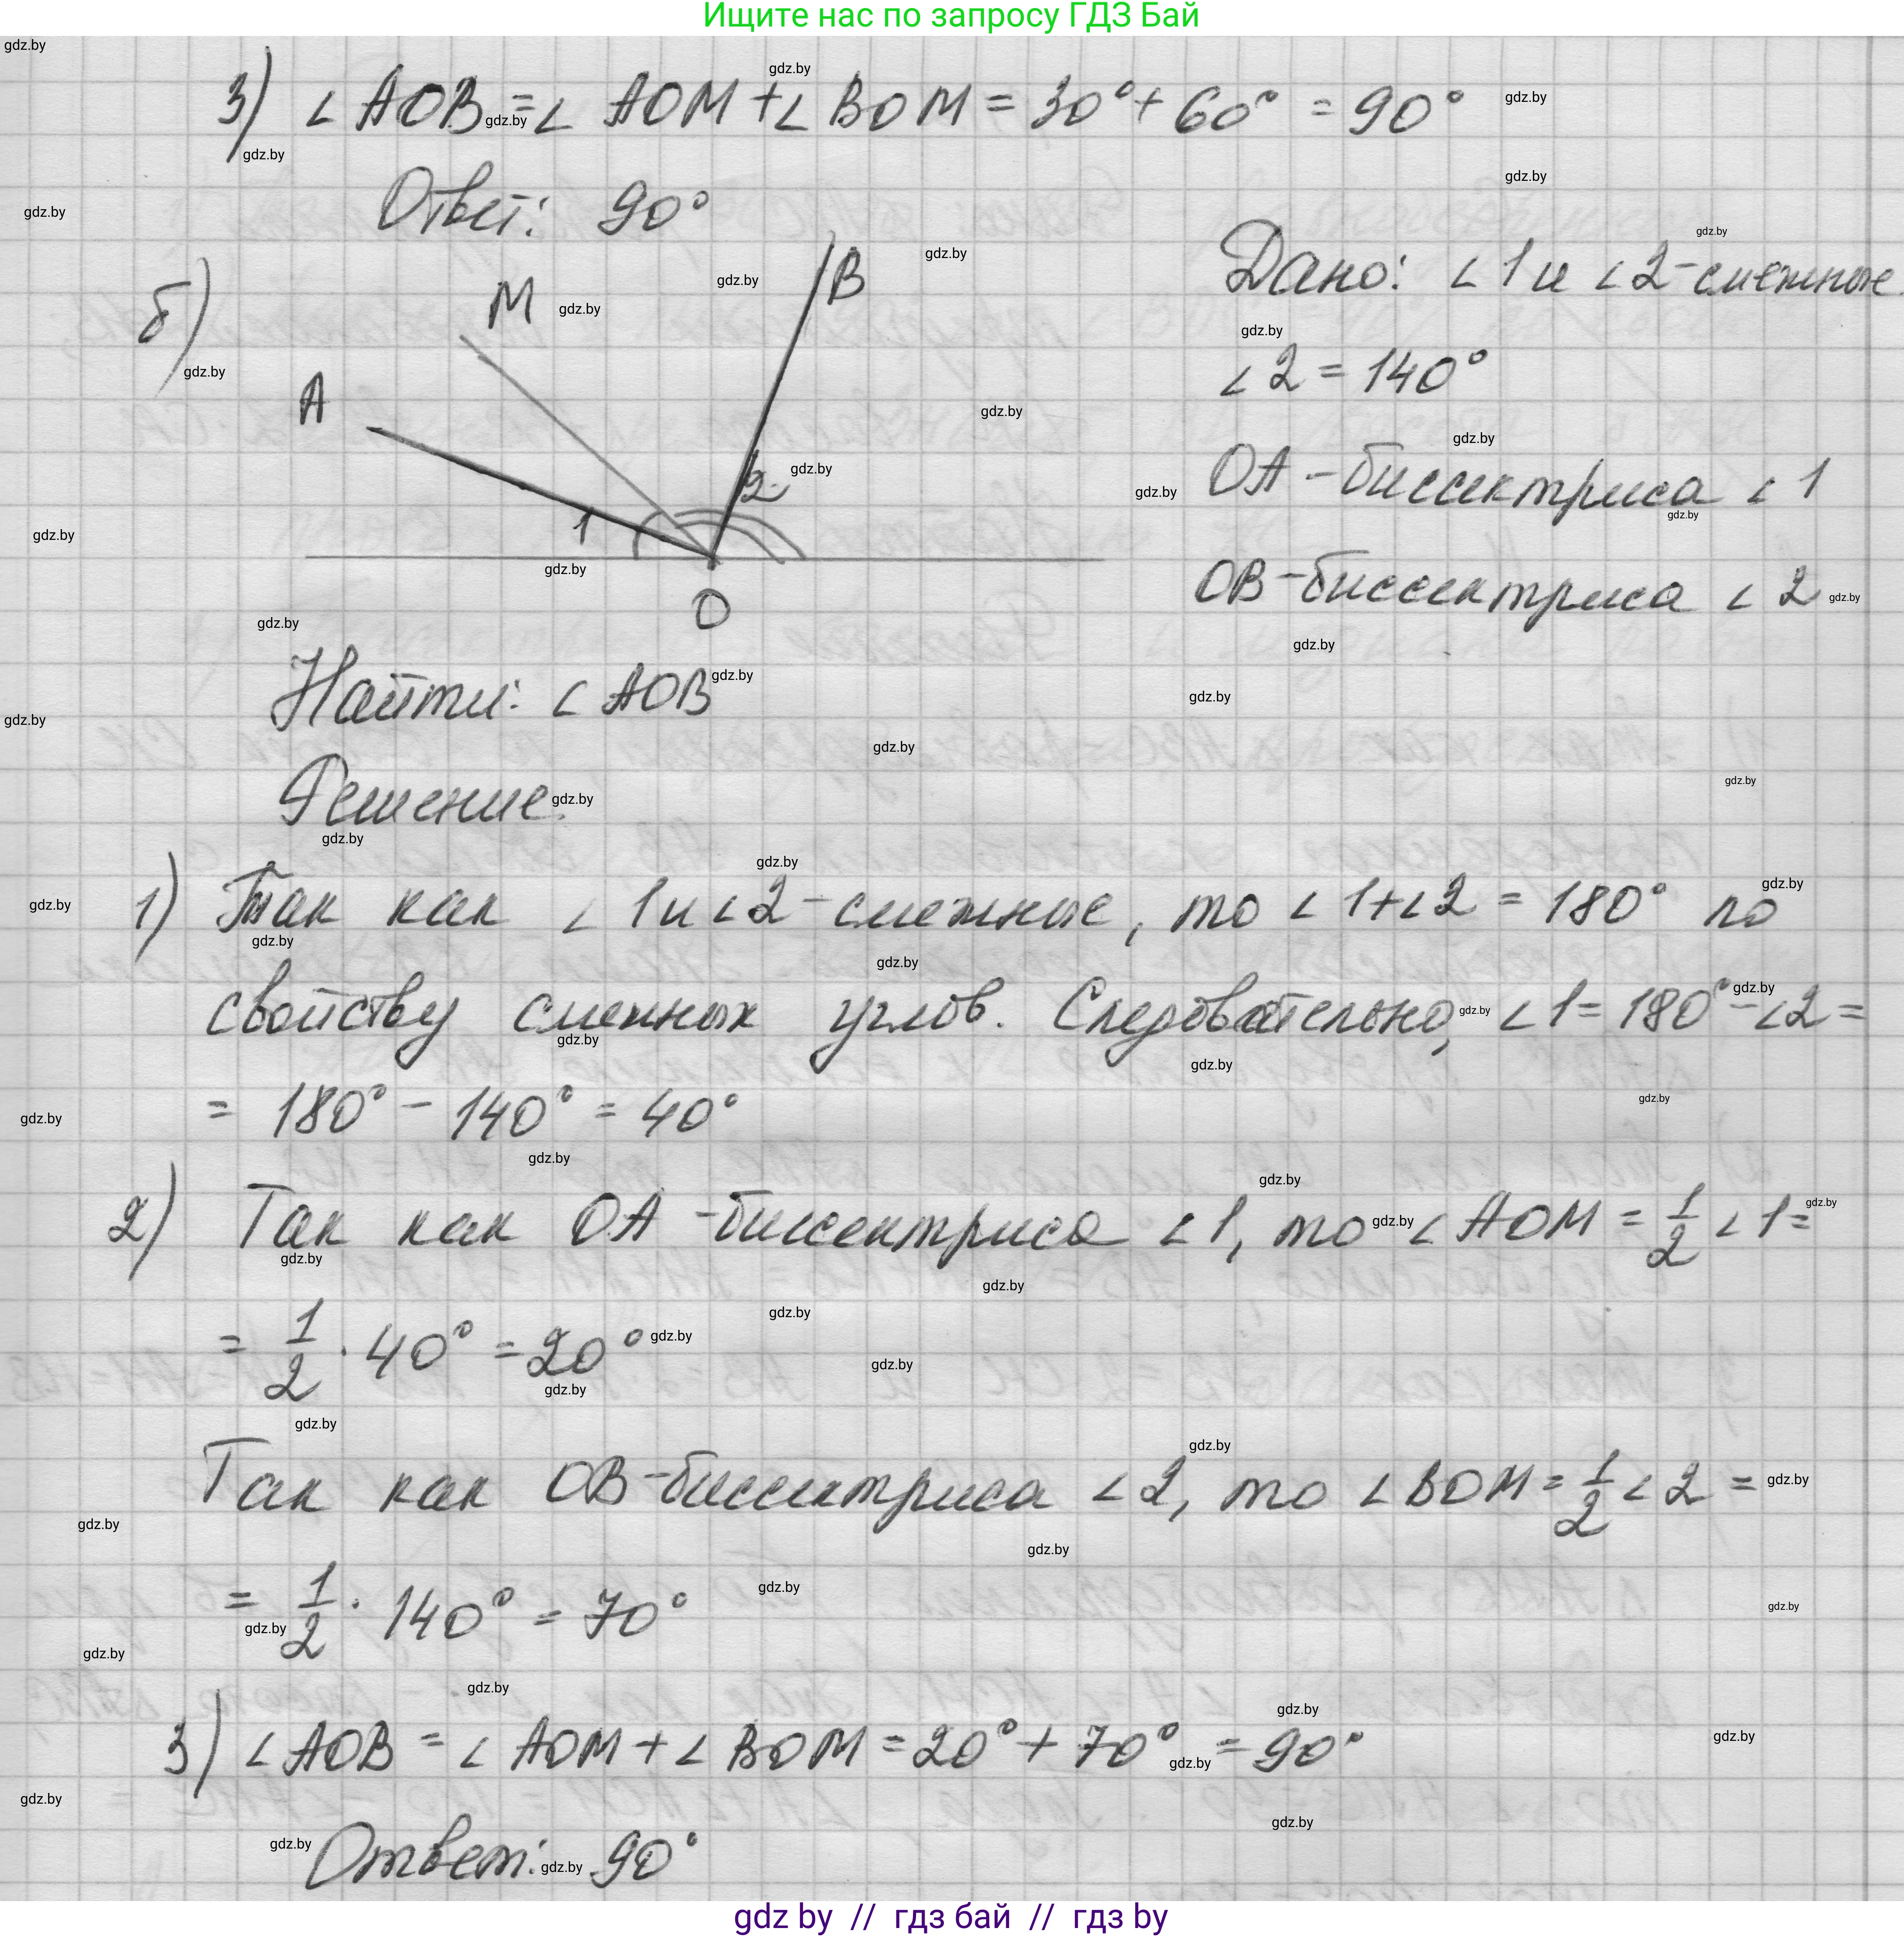 Ищите нас по запросу ГДЗ Бай
3) ∠ AOB = ∠ AOM + ∠ BOM = 30° + 60° = 90°
Ответ: 90°
б)
M
B
A
1
2
O
Дано: ∠ 1 и ∠ 2 - смежные
∠ 2 = 140°
OA - биссектриса ∠ 1
OB - биссектриса ∠ 2
Найти: ∠ AOB
Решение.
1) Так как ∠ 1 и ∠ 2 - смежные, то ∠ 1 + ∠ 2 = 180° по
свойству смежных углов. Следовательно, ∠ 1 = 180° - ∠ 2 =
= 180° - 140° = 40°
2) Так как OA - биссектриса ∠ 1, то ∠ AOM = 1/2 ∠ 1 =
= 1/2 · 40° = 20°
Так как OB - биссектриса ∠ 2, то ∠ BOM = 1/2 ∠ 2 =
= 1/2 · 140° = 70°
3) ∠ AOB = ∠ AOM + ∠ BOM = 20° + 70° = 90°
Ответ: 90°
gdz by // гдз бай // гдз by